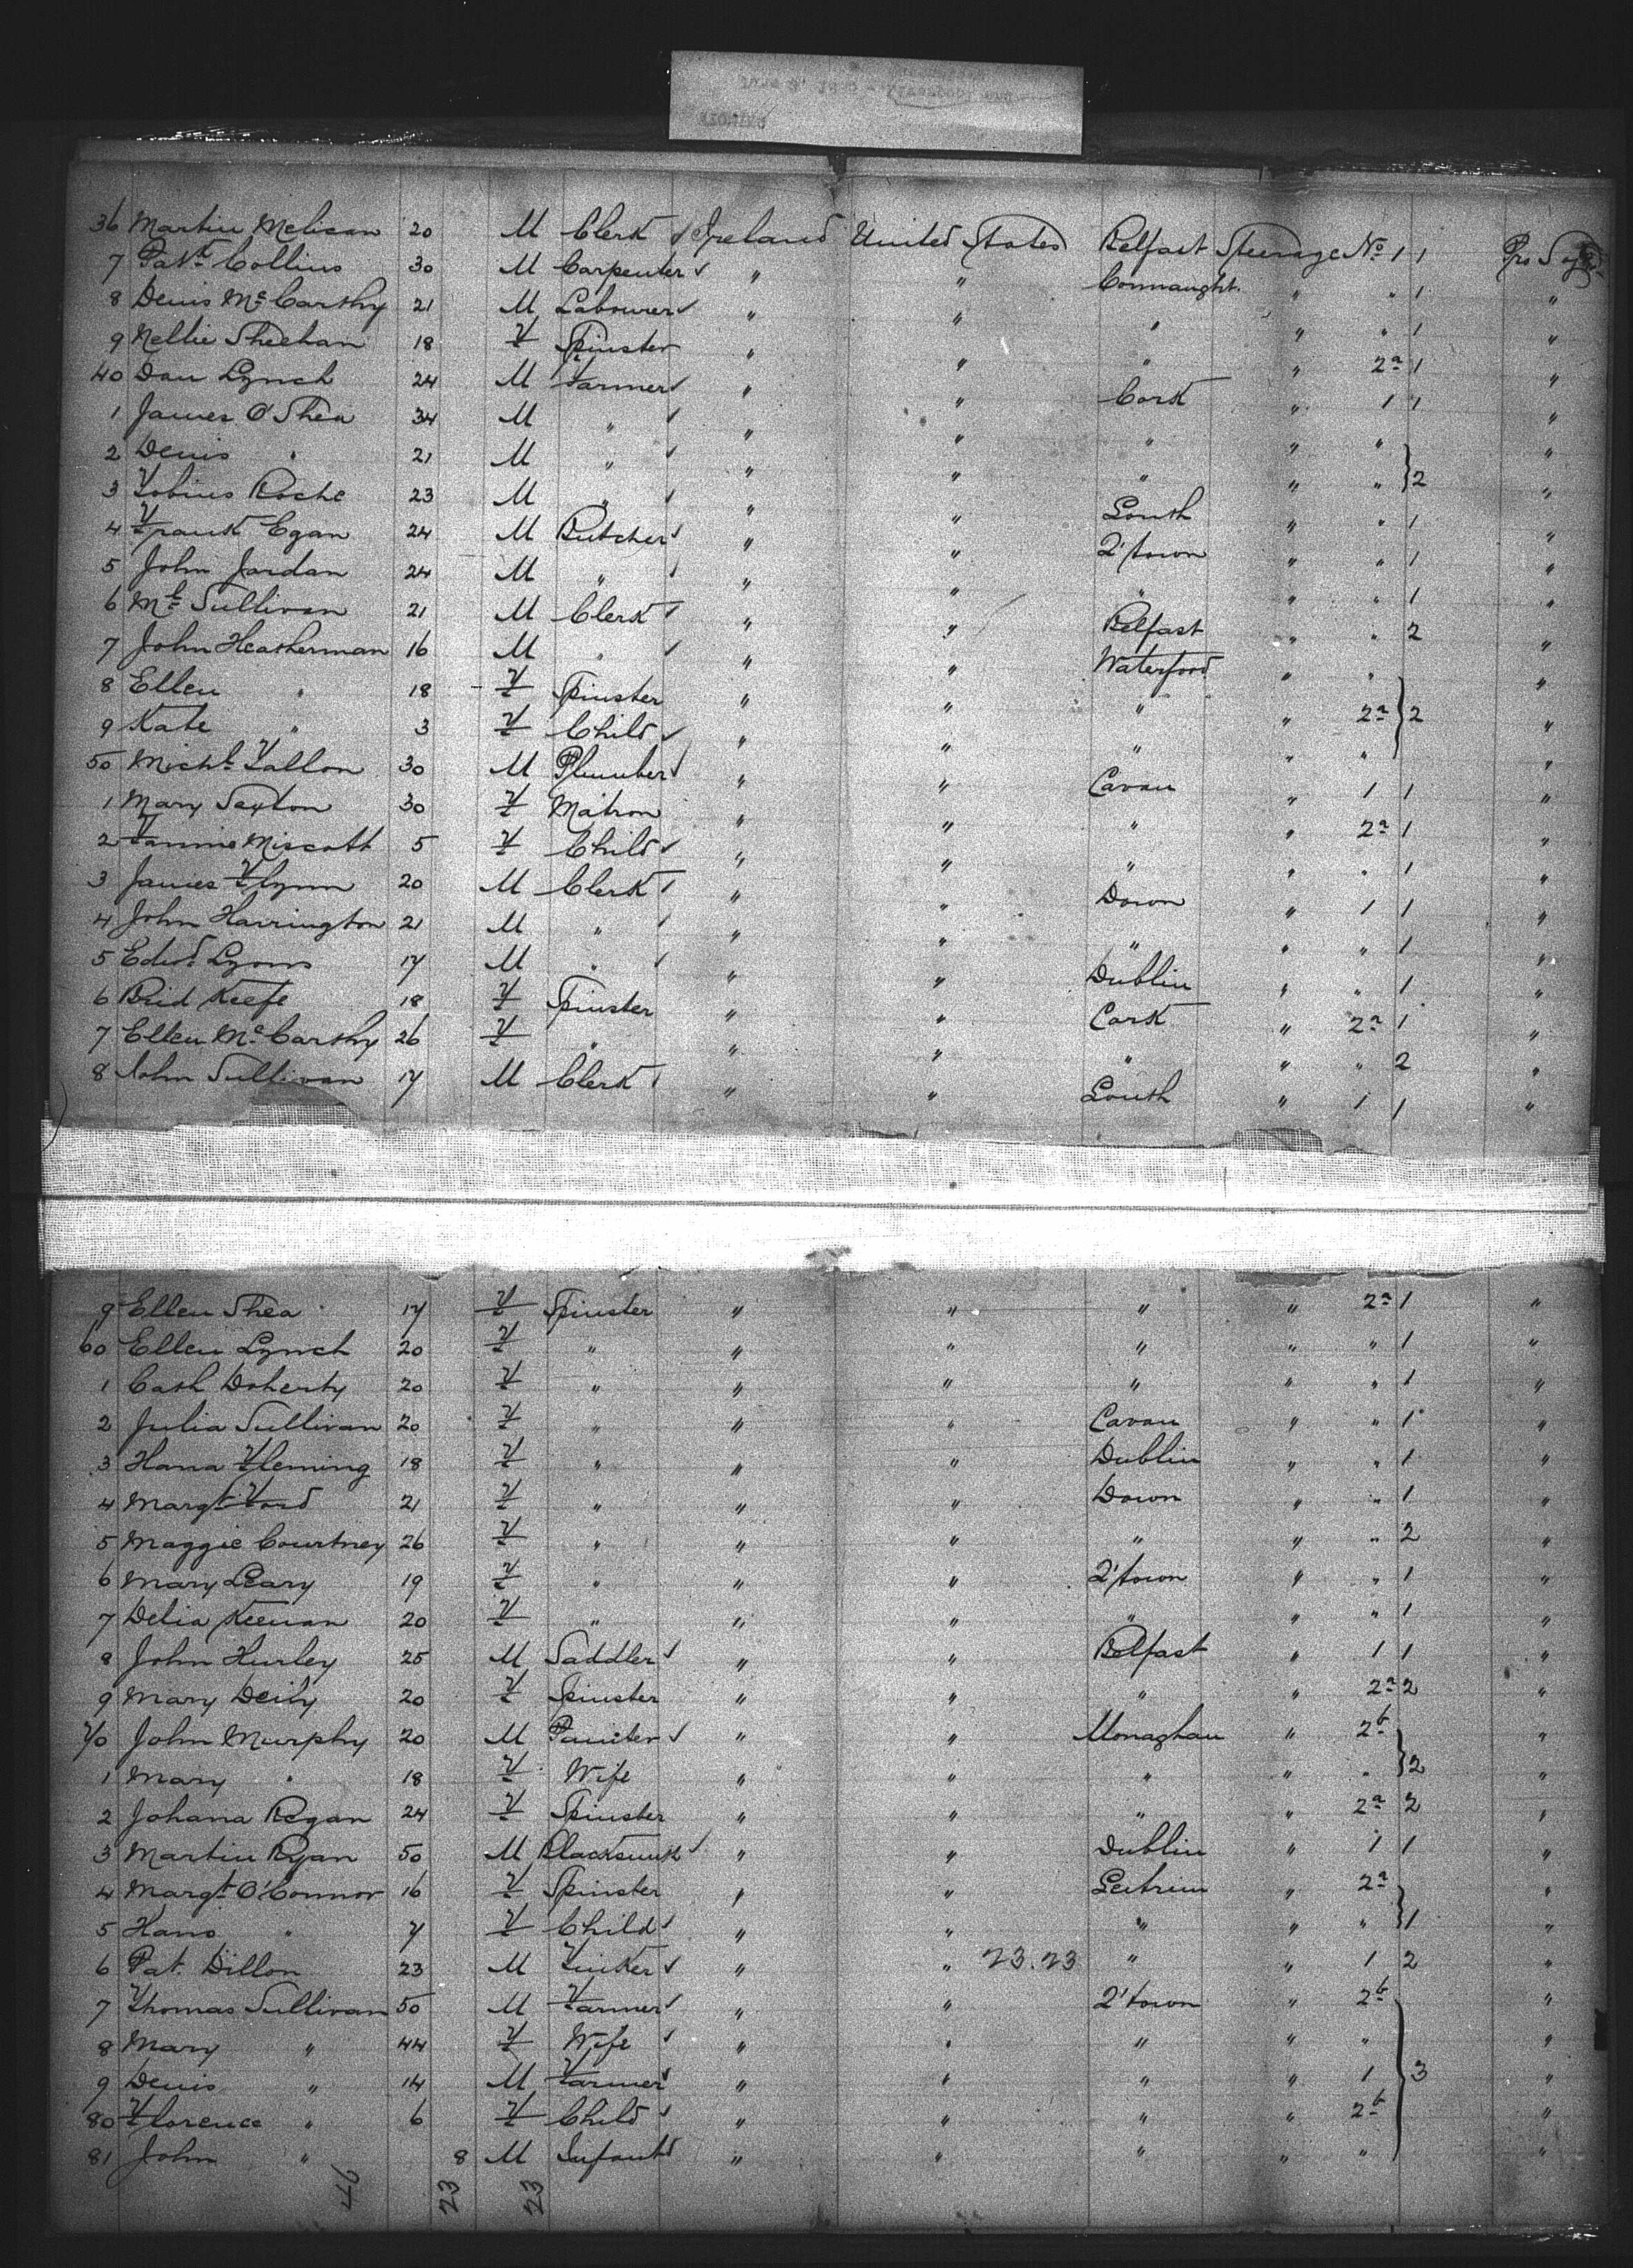 36 Martin Melican 20 M Clerk Ireland United States Belfast Steerage No 1 1 Pro Sojg
7 Patk Collins 30 M Carpenter " " Connaught " " 1 "
8 Denis McCarthy 21 M Labourer " " " " " 1 "
9 Nellie Sheehan 18 F Spinster " " " " 2a 1 "
40 Dan Lynch 24 M Farmer " " Cork " 1 1 "
1 James O'Shea 34 M " " " " " " "
2 Denis " 21 M " " " " " " 2 "
3 Tobius Roche 23 M " " " Louth " " 1 "
4 Frank Egan 24 M Butcher " " Q'town " " 1 "
5 John Jordan 24 M " " " " " " 1 "
6 Ml Sullivan 21 M Clerk " " Belfast " " 2 "
7 John Heatherman 16 M " " " Waterford " " "
8 Ellen " 18 F Spinster " " " " 2a 2 "
9 Kate " 3 F Child " " " " " "
50 Michl Fallon 30 M Plumber " " Cavan " 1 1 "
1 Mary Sexton 30 F Matron " " " " 2a 1 "
2 Fannie Miscott 5 F Child " " " " " 1 "
3 James Flynn 20 M Clerk " " Down " 1 1 "
4 John Harrington 21 M " " " " " " 1 "
5 Edwd Lyons 17 M " " " Dublin " " 1 "
6 Brid Keefe 18 F Spinster " " Cork " 2a 1 "
7 Ellen McCarthy 26 F " " " " " " 2 "
8 John Sullivan 17 M Clerk " " Louth " 1 1 "
9 Ellen Shea 17 F Spinster " " " " 2a 1 "
60 Ellen Lynch 20 F " " " " " " 1 "
1 Cath Doherty 20 F " " " " " " 1 "
2 Julia Sullivan 20 F " " " Cavan " " 1 "
3 Hana Fleming 18 F " " " Dublin " " 1 "
4 Margt Ford 21 F " " " Down " " 1 "
5 Maggie Courtney 26 F " " " " " " 2 "
6 Mary Leary 19 F " " " Q'town " " 1 "
7 Delia Keenan 20 F " " " " " " 1 "
8 John Hurley 25 M Saddler " " Belfast " 1 1 "
9 Mary Deily 20 F Spinster " " " " 2a 2 "
70 John Murphy 20 M Painter " " Monaghan " 2b "
1 Mary " 18 F Wife " " " " " 2 "
2 Johana Regan 24 F Spinster " " " " 2a 2 "
3 Martin Ryan 50 M Blacksmith " " Dublin " 1 1 "
4 Margt O'Connor 16 F Spinster " " Leitrim " 2a "
5 Hano " 7 F Child " " " " " 1 "
6 Pat. Dillon 23 M Tinker " " 23.23 " " 1 2 "
7 Thomas Sullivan 50 M Farmer " " Q'town " 2b "
8 Mary " 44 F Wife " " " " " "
9 Denis " 14 M Farmer " " " " 1 3 "
80 Florence " 6 F Child " " " " 2b "
81 John " 8 M Infant " " " " " "
46 23 23